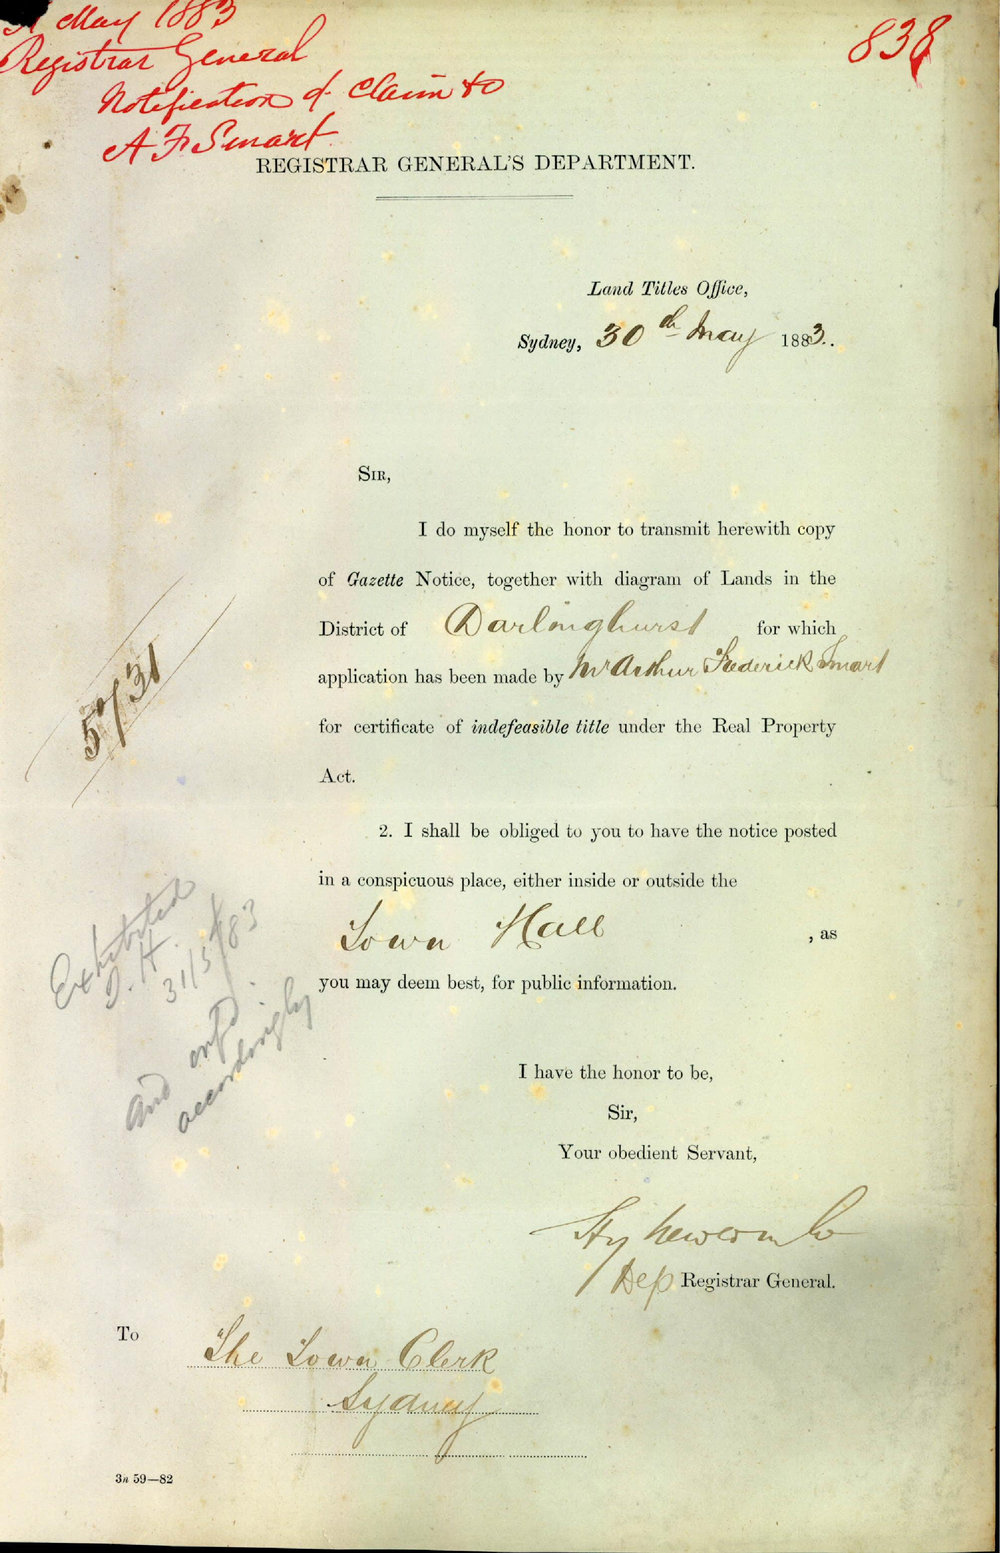 31 May 1883
Registrar General
Notification of claim to
A F Smart
838
REGISTRAR GENERAL'S DEPARTMENT.
Land Titles Office,
Sydney, 30th May 1883.
SIR,
I do myself the honor to transmit herewith copy
of Gazette Notice, together with diagram of Lands in the
District of Darlinghurst for which
application has been made by Mr Arthur Frederick Smart
for certificate of indefeasible title under the Real Property
Act.
5731
2. I shall be obliged to you to have the notice posted
in a conspicuous place, either inside or outside the
Town Hall , as
you may deem best, for public information.
Exhibited
T. H.
31/5/83
and
accordingly
I have the honor to be,
Sir,
Your obedient Servant,
Newcombe
Dep Registrar General.
To
The Town Clerk
Sydney
3n 59—82